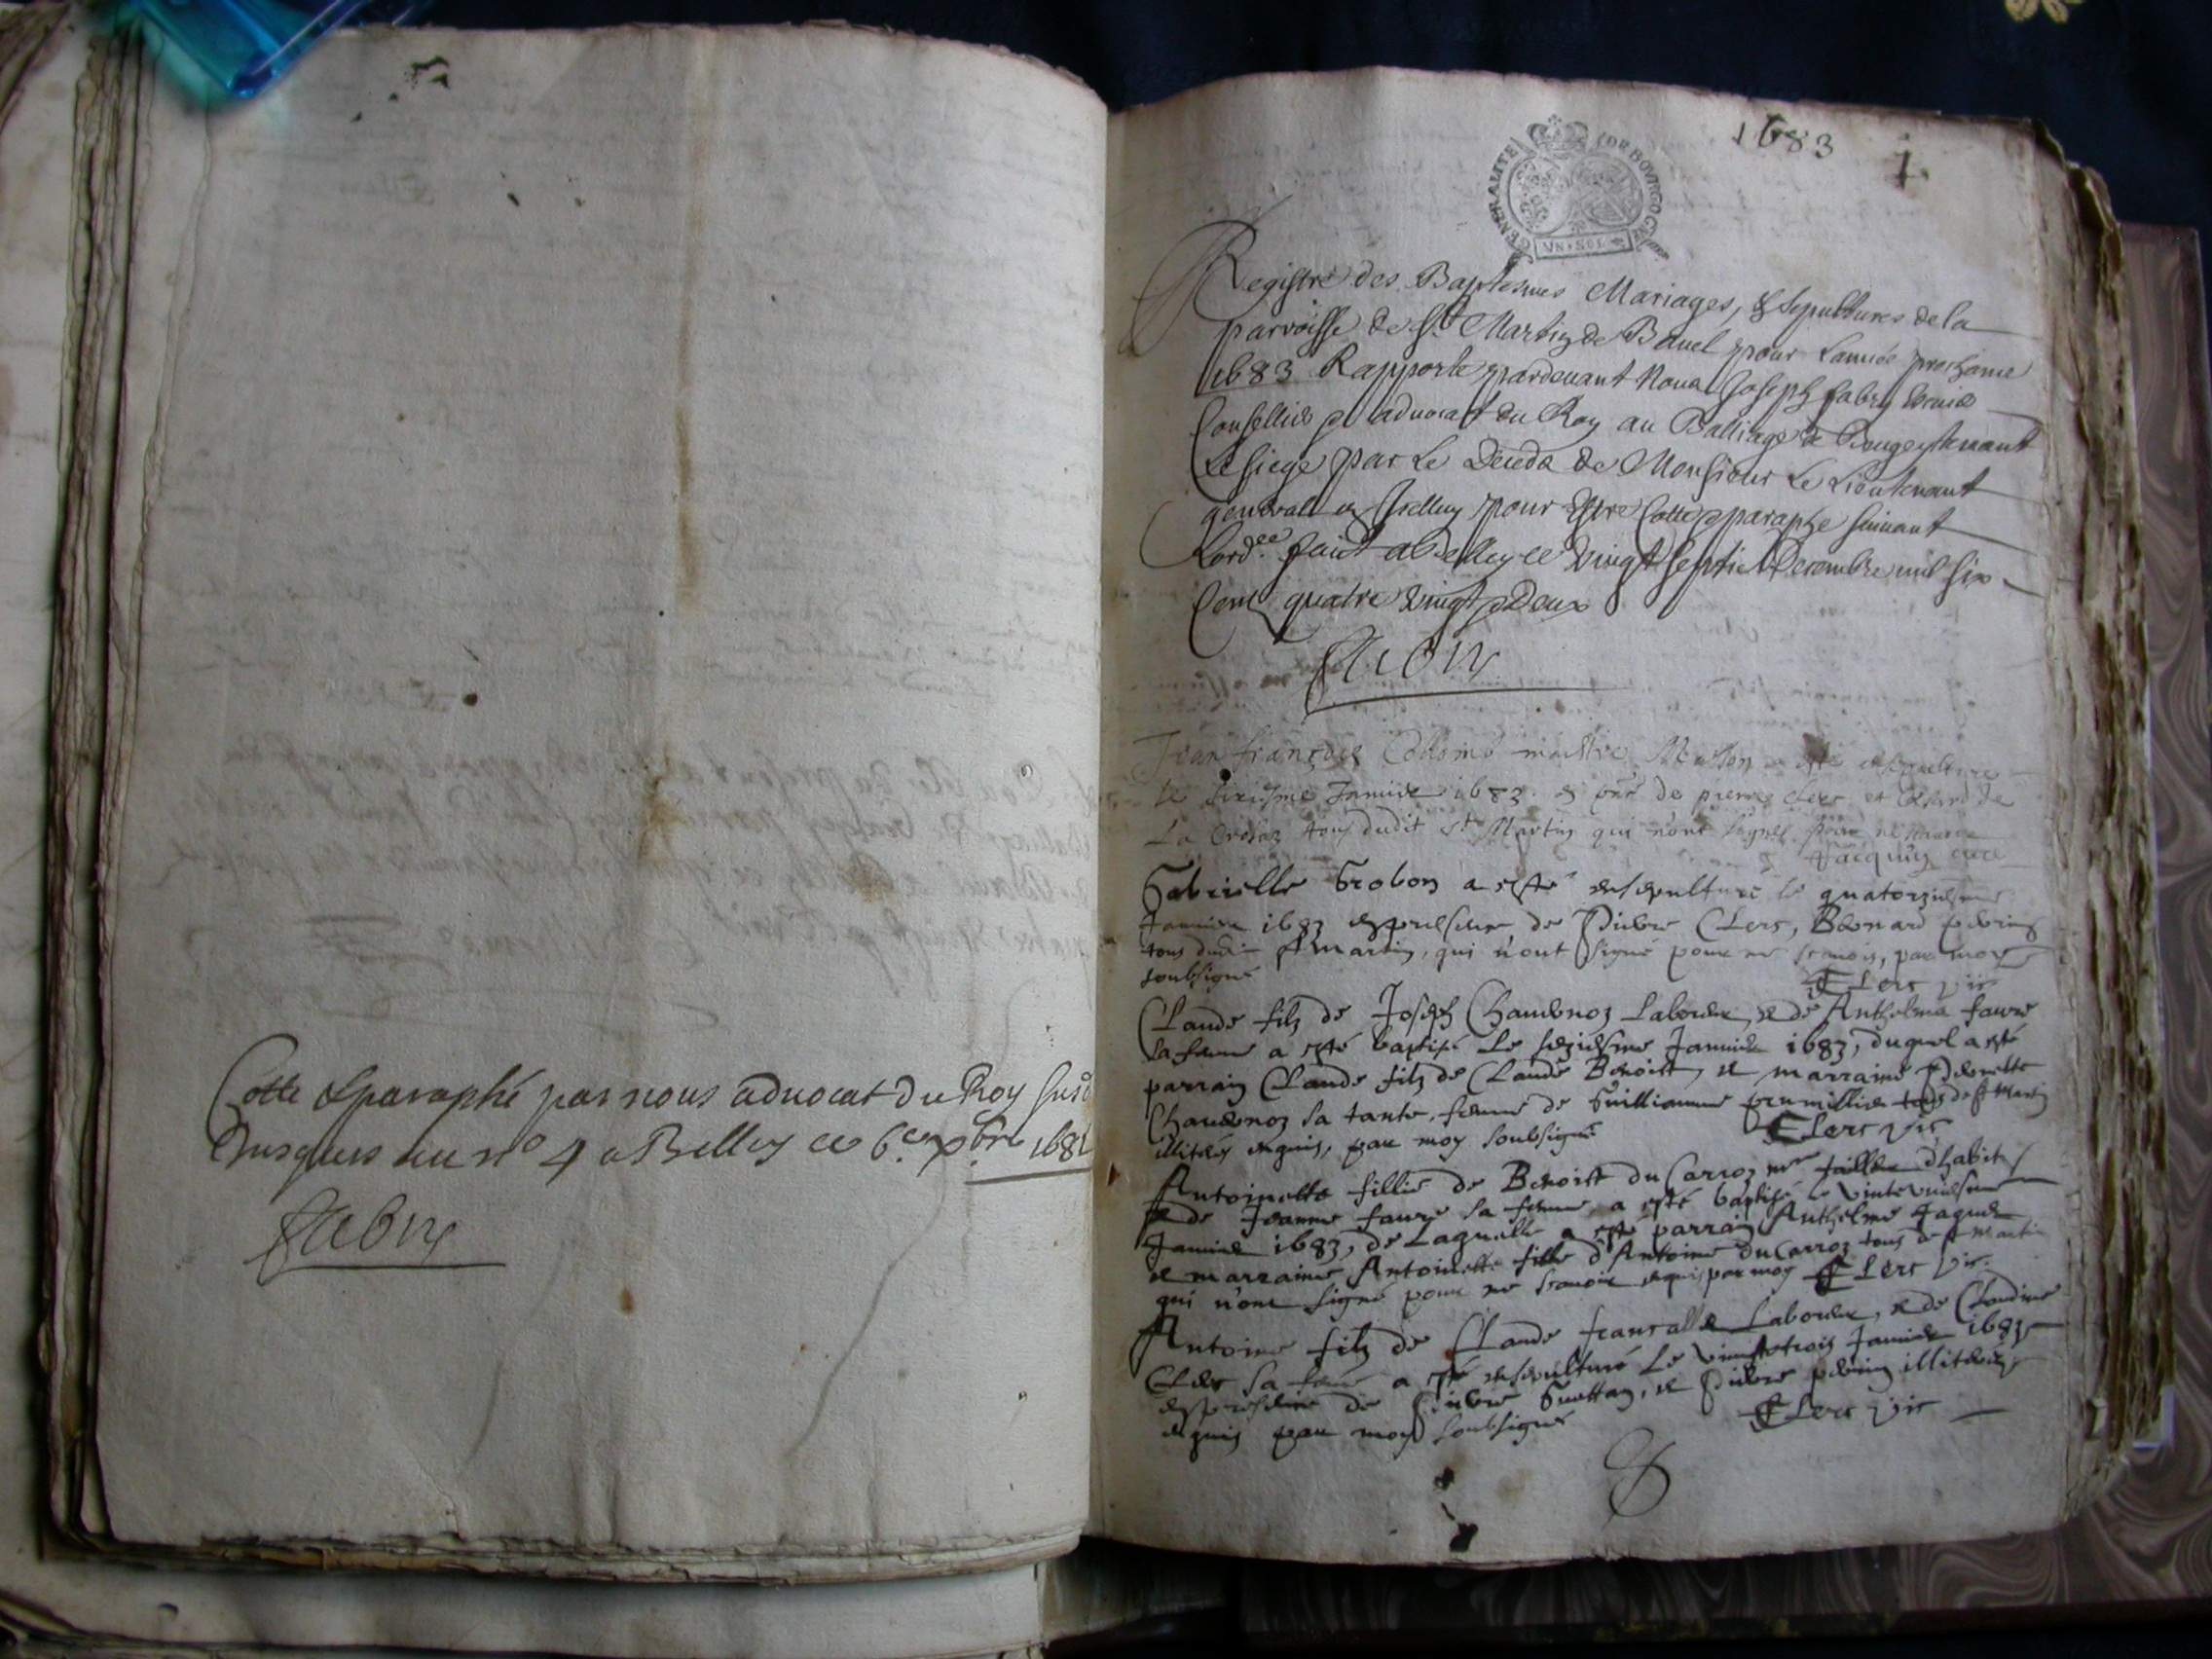 Cotte & paraphé par nous advocat du Roy susd
Jusques au n.º 4 a Belley ce 6.e xbre 1681
Fabry
1683
1
GENERALITE DE BOVRGOGNE
VN SOL
Registre des Baptesmes Mariages, & Sepultures de la
parroisse de St Martin de Bavel pour Lannée prochaine
1683 Rapporté pardevant Nous Joseph fabry
Conseller & advocat du Roy au Balliage de Beugey tenant
Le siege par Le Deceds de Monsieur Le Lieutenant
general en Icelluy pour Estre Cotté & paraphe suivant
Lord.ce faict a Belley ce vingt septie Decembre mil six
Cent quatre vingt & Deux
Fabry
Jean françois maistre Masson a esté ensepulturé
le sixiesme Janvier 1683. en pnce de pierre clerc et
La tous dudit st Martin qui nont signés pour ne scavoir
Jacquin curé
Gabrielle Grobon a esté ensepulturé le quatorziesme
Janvier 1683 en presence de Pierre Clerc, Benard perrin
tous dudit St Martin, qui n'ont signé pour ne scavoir, par moy
soubsigné
Clerc vic
Claude filz de Joseph Chaudnoz Laboreur, & de Anthelma faure
sa feme a esté baptisé Le seziesme Janvier 1683, duquel a esté
parrain Claude filz de Claude Benoist, et marraine Pernette
Chaudnoz sa tante, feme de Guilliaume tous de St Martin
illiterés enquis, par moy soubsigné Clerc vic
Antoinette fillie de Benoist du Carroz mre tailleur d'habit
& de Jeanne faure sa feme a esté baptisé le vintevniesme
Janvier 1683, de Laquelle a esté parrain Anthelme Jaquer
et marraine Antoinette fille d'Antoine du Carroz tous de St Martin
qui n'ont signé pour ne scavoir enquis par moy Clerc vic.
Antoine filz de Claude francallet Laboreur, et de Claudine
Clerc sa feme a esté ensepulturé Le vingtetrois Janvier 1683
en presence de Pierre Guettan, et Pierre perrin illiterés
enquis par moy soubsigné Clerc vic